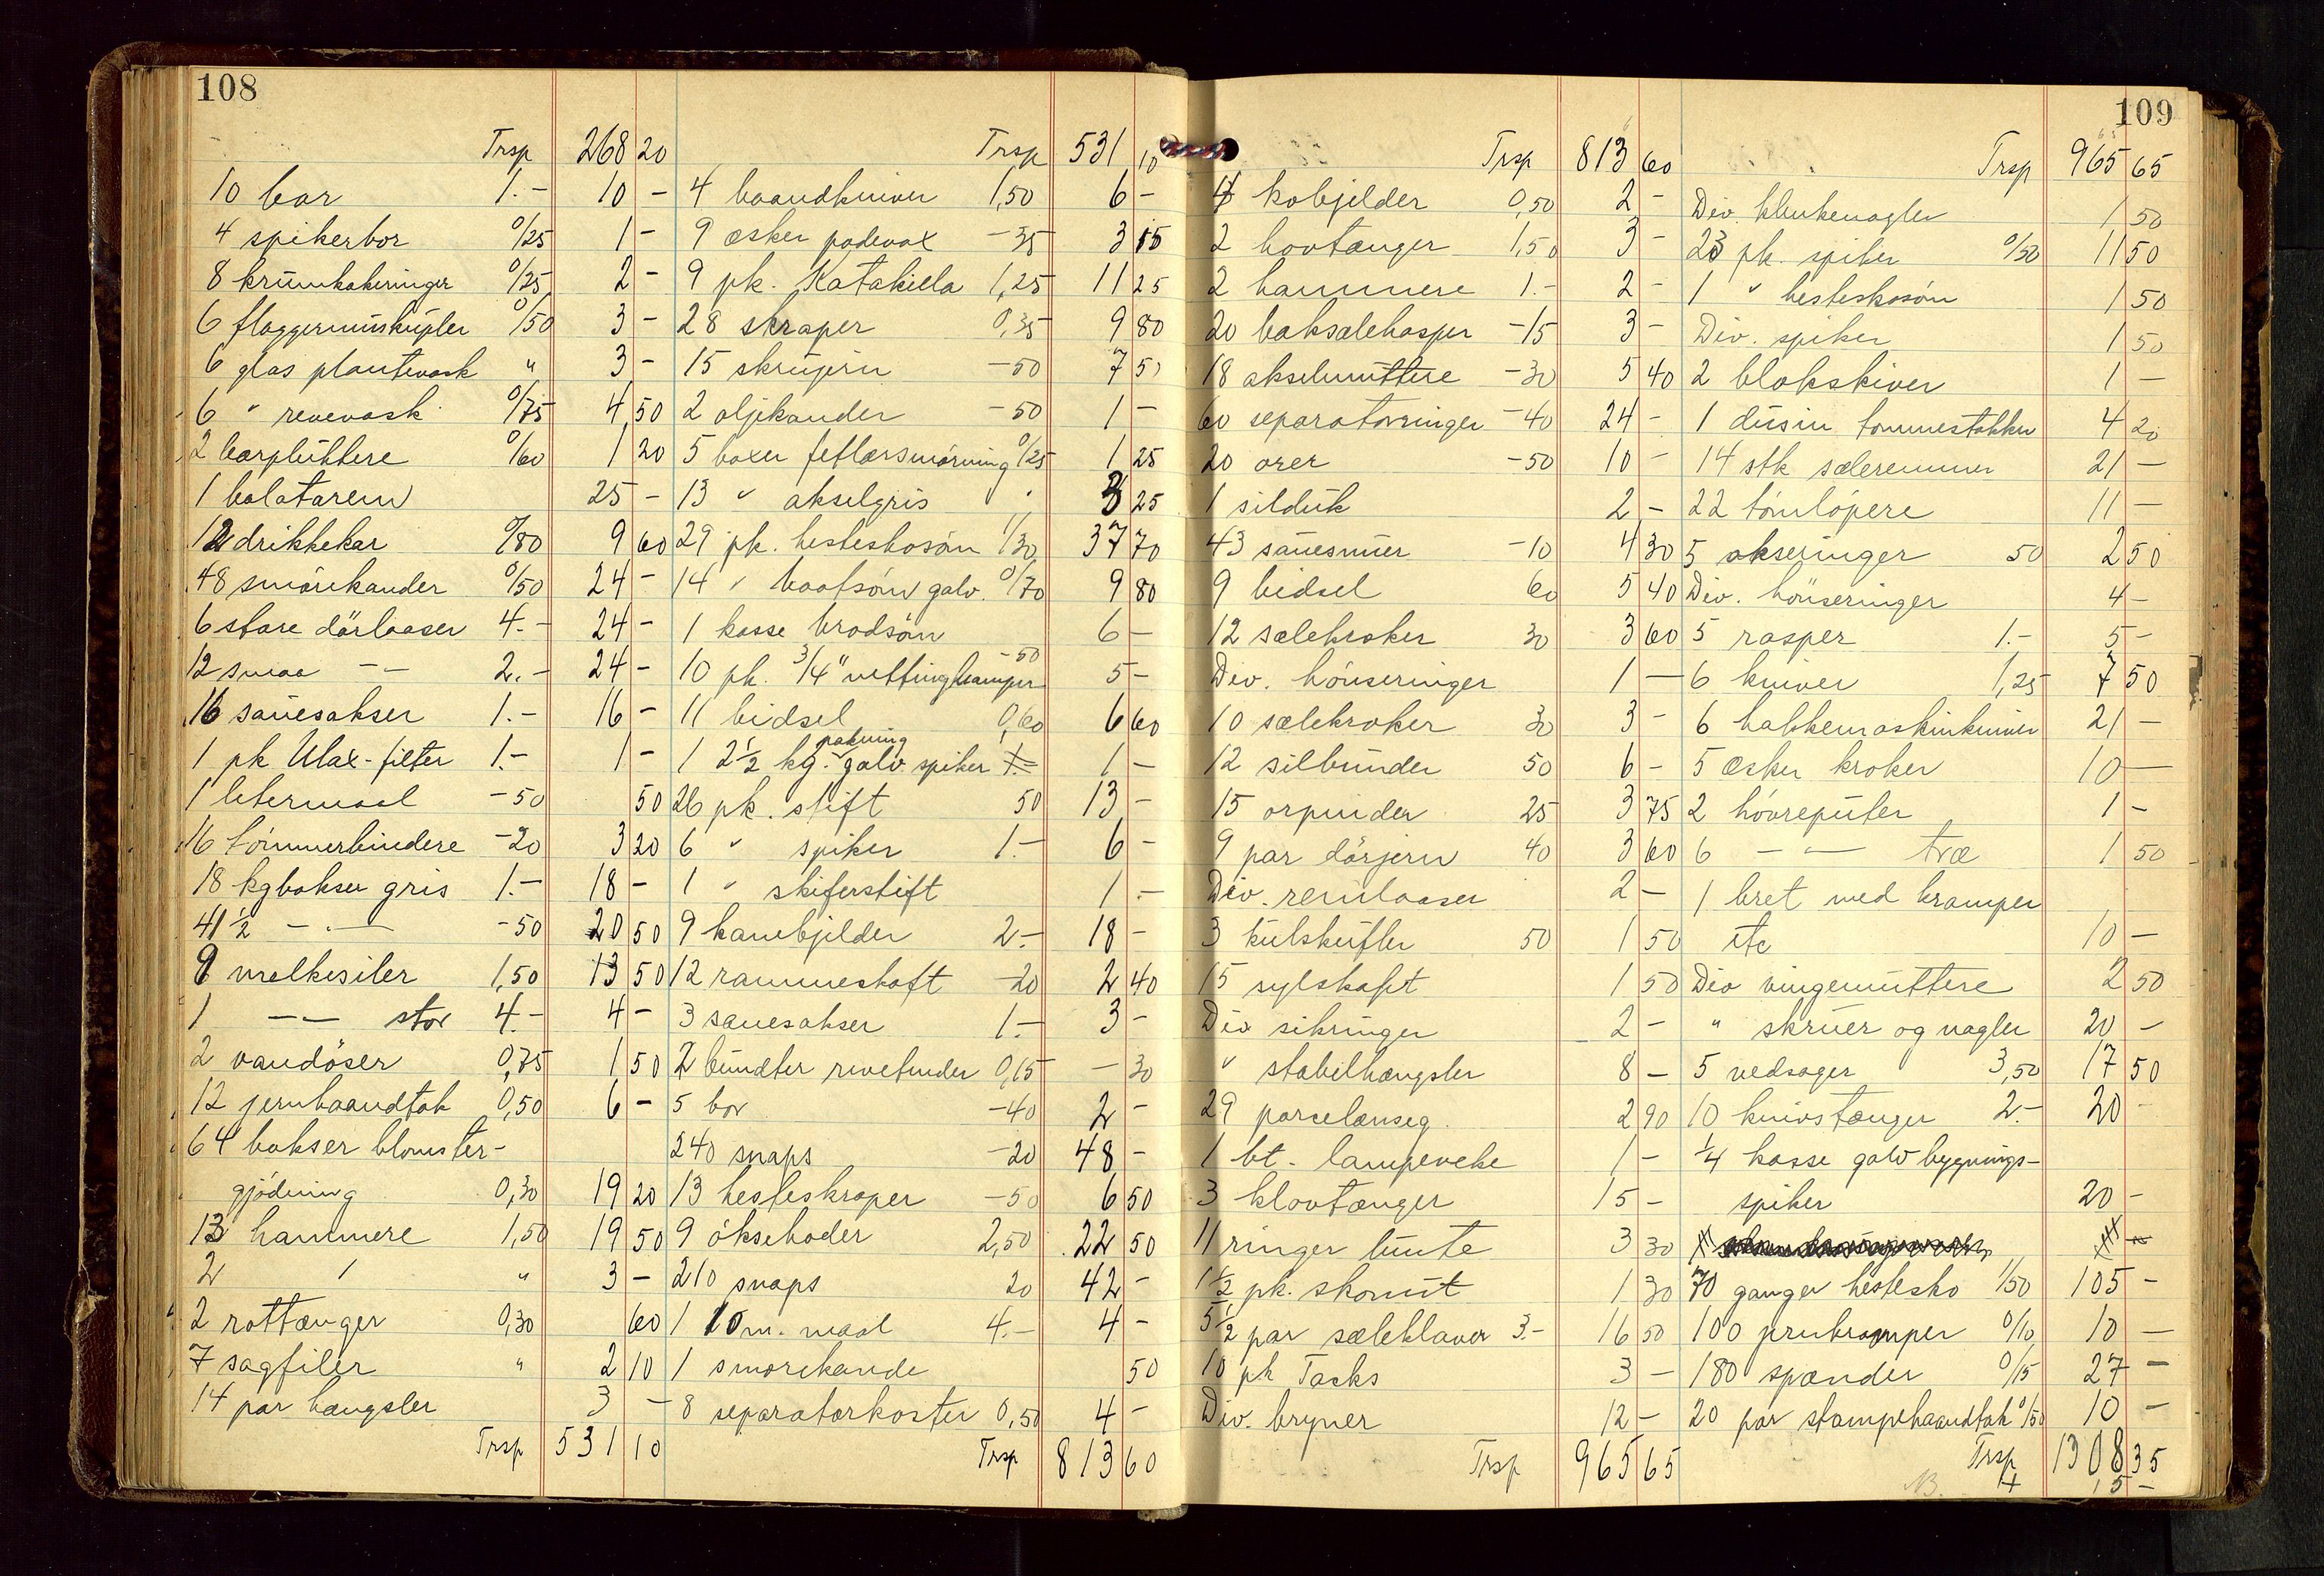 108
Trsp 268 20
10 bor 1.- 10 -
4 spikerbor 0/25 1 -
8 krumkakeringer 0/25 2 -
6 flaggermuskupler 0/50 3 -
6 glas plantevask " 3 -
6 " revevask 0/75 4,50
2 barpluttere 0/60 1 20
1 balatarem 25 -
12 drikkekar 0/80 9 60
48 smörekander 0/50 24 -
6 store dörlaaser 4.- 24 -
12 smaa - - 2.- 24 -
16 sauesakser 1.- 16 -
1 pk Ulax-filter 1.- 1 -
1 letermaal -50 50
16 tömmerbindere -20 3 20
18 kgbokser gris 1.- 18 -
41 ½ - . - -50 20 50
9 melkesiler 1,50 13 50
1 - - stor 4.- 4 -
2 vandöser 0,75 1 50
12 jernhaandtak 0,50 6 -
64 bokser blomster-
gjödning 0,30 19 20
13 hammere 1,50 19 50
2 / " 3 -
2 rottænger 0,30 60
7 sagfiler " 2 10
14 par hængsler 3 -
Trsp 531 10
Trsp 531 10
4 baandkniver 1,50 6 -
9 æsker podevox -35 3 15
9 pk. Katakilla 1,25 11 25
28 skraper 0,35 9 80
15 skrujern -50 7 50
2 oljekander -50 1 -
5 boxer fetlærsmörning 0/25 1 25
13 " akselgris " 3 25
29 pk. hesteskosöm 1/30 37 70
14 " baatsöm galv. 0/70 9 80
1 kasse brodsöm 6 -
10 pk. 3/4" nettingkramper -50 5 -
11 bidsel 0,60 6 60
1 2½ kg. pakning galv. spiker 1.- 1 -
26 pk. stift 50 13 -
6 " spiker 1.- 6 -
1 " skiferstift 1.-
9 kanebjelder 2.- 18 -
12 rammeskaft -20 2 40
3 sauesakser 1.- 3 -
2 bundter rivetinder 0,15 - 30
5 bor -40 2 -
240 snaps -20 48 -
13 hesteskraper -50 6 50
9 öksehoder 2,50 22 50
210 snaps 20 42 -
1 10 m. maal 4.- 4 -
1 smörekande 50
8 separatorkoster 0,50 4 -
Trsp 813 60
109
Trsp 813 60
4 kobjelder 0,50 2 -
2 hovtænger 1,50 3 -
2 hammere 1.- 2 -
20 baksælehasper -15 3 -
18 akselmuttere -30 5 40
60 separatorringer -40 24 -
20 orer -50 10 -
1 silduk 2 -
43 sauesnuer -10 4 30
9 bidsel 60 5 40
12 sælekroker 30 3 60
Div. hönseringer 1 -
10 sælekroker 30 3 -
12 silbunder 50 6 -
15 orpinder 25 3 75
9 par dörjern 40 3 60
Div. remlaaser 2 -
3 kulskufler 50 1 50
15 sylskaft 1 50
Div sikringer 2 -
" stabelhængsler 8 -
29 porcelænseg 2 90
1 bt. lampeveke 1 -
3 klovtænger 15 -
11 ringer lunte 3 30
1½ pk. skonut 1 30
5½ par sæleklaver 3.- 16 50
10 pk Tacks 3 -
Div. bryner 12 -
Trsp 965 65
Trsp 965 65
Div. klinkenagler 1 50
23 pk. spiker 0/50 11 50
1 " hesteskosöm 1 50
Div. spiker 1 50
2 blokskiver 1 -
1 dusin tommestokker 4 20
14 stk sæleremmer 21 -
22 tömlöpere 11 -
5 akseringer 50 2 50
Div. hönseringer 4 -
5 rasper 1.- 5 -
6 kniver 1,25 7 50
6 hakkemaskinkniver 21 -
5 æsker kroker 10 -
2 hövreputer 1 -
6 - - træ 1 50
1 bret med kramper
etc 10 -
Div vingemuttere 2 50
" skruer og nagler 20 -
5 vedsager 3,50 17 50
10 knivstænger 2.- 20 -
¼ kasse galv bygnings-
spiker 20 -
70 ganger hestesko 1/50 105 -
100 jernkramper 0/10 10 -
180 spænder 0/15 27 -
20 par stampehaandtak 0/50 10 -
Trsp 1308 35
+ 15 -